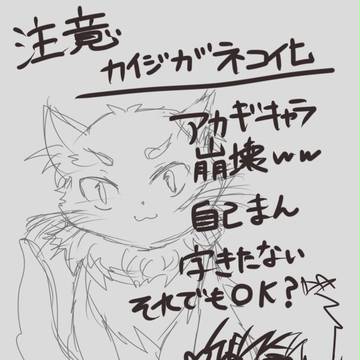 注意
カイジガネコ化
アカギキャラ
崩壊ww
自己まん
字きたない
それでもOK?